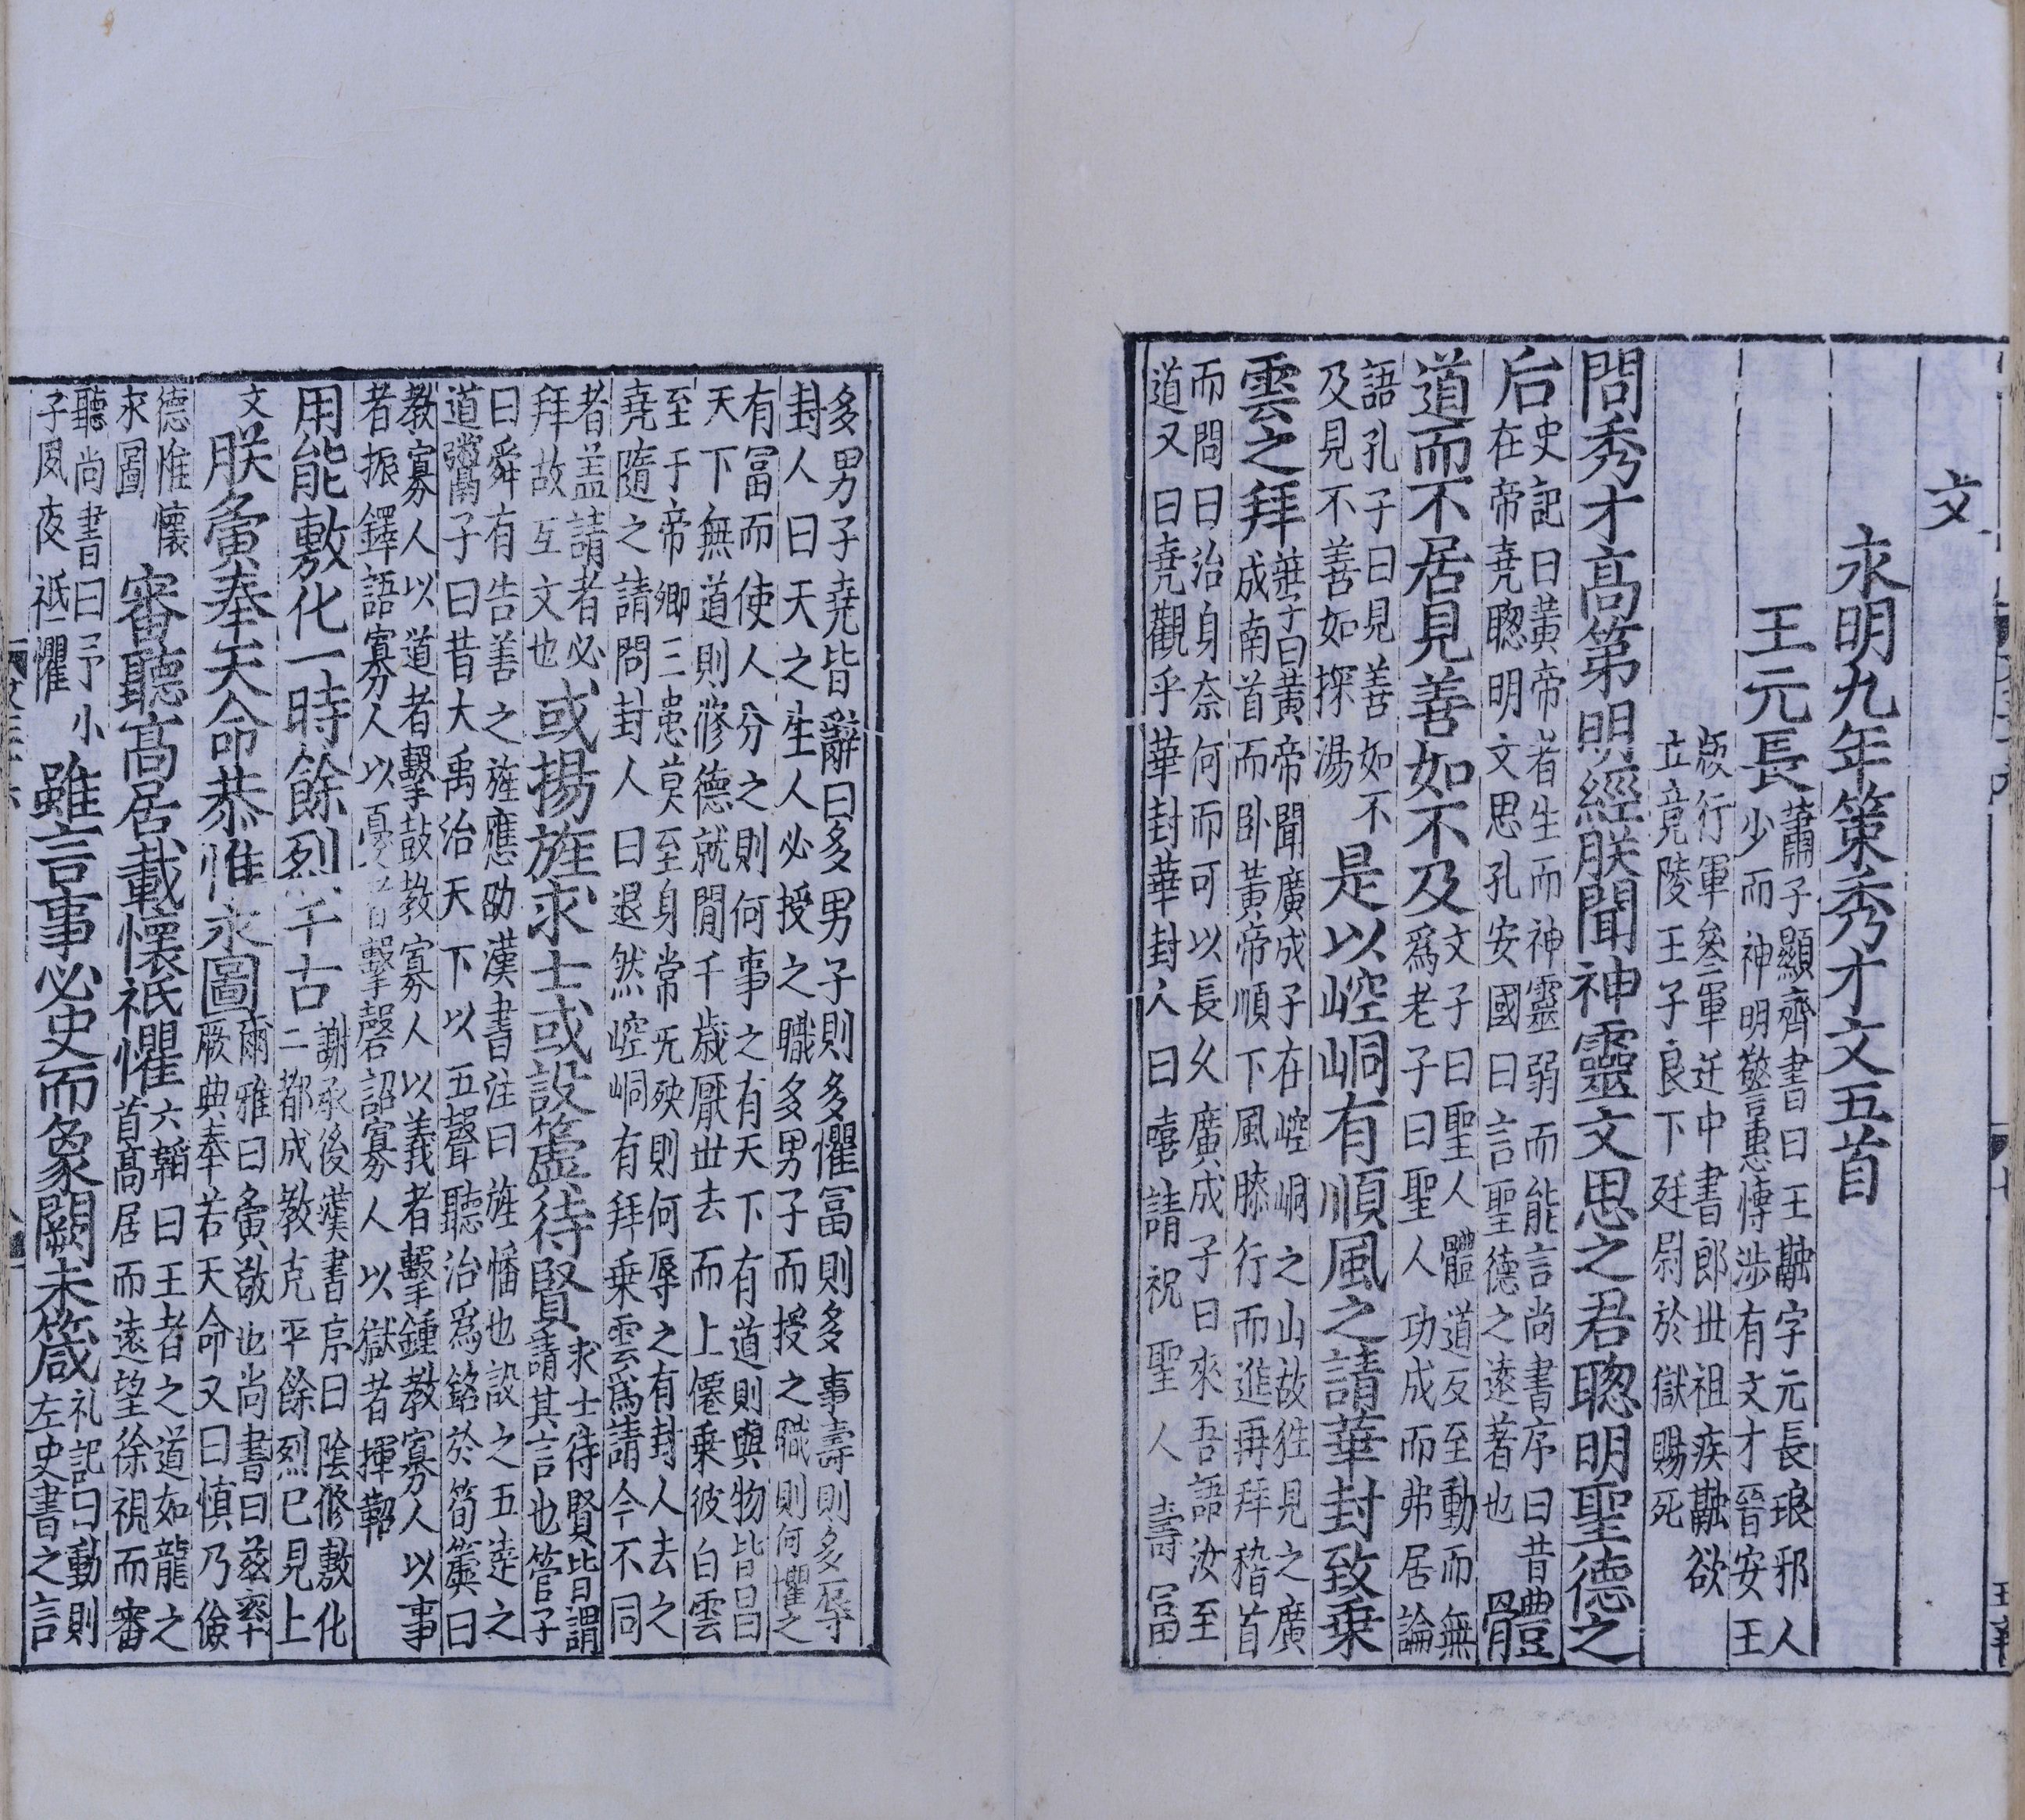 文
永明九年策秀才文五首
王元長蕭子顯齊書曰王融字元長琅邪人少而神明警惠博涉有文才晉安王
版行軍叅軍迁中書郎世祖疾融欲立竟陵王子良下廷尉於獄賜死
問秀才高第明經朕聞神靈文思之君聦明聖德之
后史記曰黃帝者生而神靈弱而能言尚書序曰昔在帝堯聦明文思孔安國曰言聖德之遠著也體
道而不居見善如不及文子曰聖人體道反至動而無爲老子曰聖人功成而弗居論
語孔子曰見善如不及見不善如探湯是以崆峒有順風之請華封致乗
雲之拜莊子曰黃帝聞廣成子在崆峒之山故徃見之廣成南首而卧黃帝順下風膝行而進再拜稽首
而問曰治身奈何而可以長久廣成子曰來吾語汝至道又曰堯觀乎華封華封人曰嘻請祝聖人壽冨
多男子堯皆辭曰多男子則多懼冨則多事壽則多辱封人曰天之生人必授之職多男子而授之職則何懼之
有冨而使人分之則何事之有天下有道則與物皆昌天下無道則修德就閒千歲厭世去而上僊乗彼白雲
至于帝鄉三患莫至身常旡殃則何辱之有封人去之堯隨之請問封人曰退然崆峒有拜乗雲爲請今不同
者盖請者必拜故互文也或揚旌求士或設簴待賢求士待賢皆謂請其言也管子
曰舜有告善之旌應劭漢書注曰旌幡也設之五達之道鬻子曰昔大禹治天下以五聲聽治爲銘於筍簴曰
教寡人以道者擊鼓教寡人以義者擊鍾教寡人以事者振鐸語寡人以憂者擊磬詔寡人以獄者揮鞀
用能敷化一時餘烈千古謝承後漢書序曰陰修敷化二都成教克平餘烈已見上
文朕夤奉天命恭惟永圖爾雅曰夤敬也尚書曰兹率厥典奉若天命又曰慎乃儉
德惟懷永圖審聽髙居載懷祗懼六韜曰王者之道如龍之首髙居而遠望徐視而審
聽尚書曰予小子夙夜祗懼雖言事必史而象闕未箴礼記曰動則左史書之言